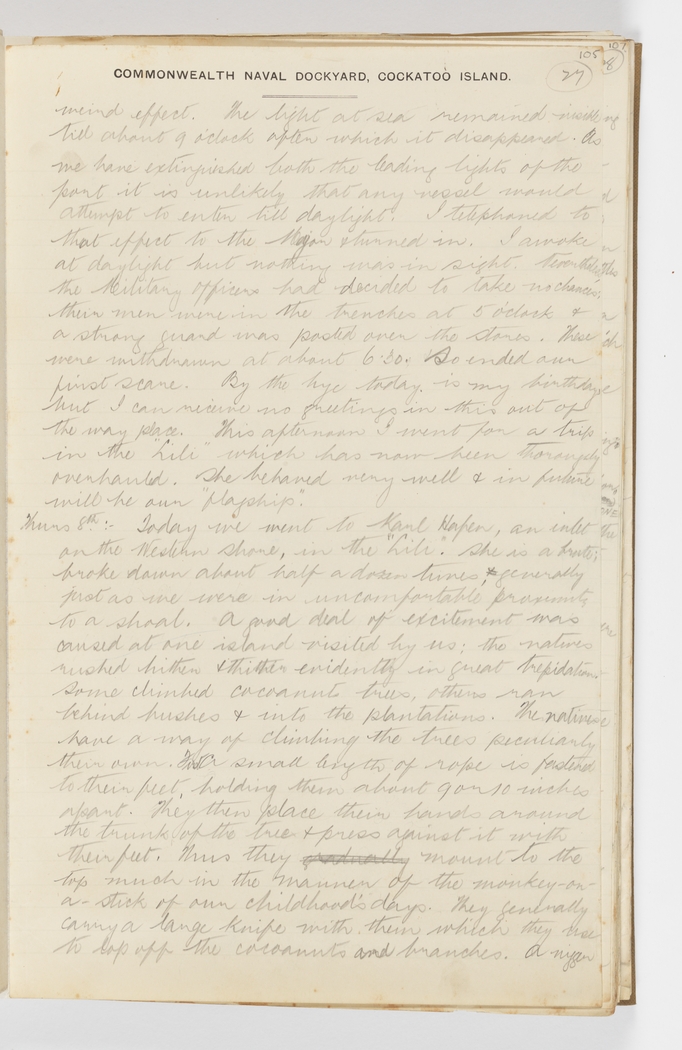 105
107
27
8
COMMONWEALTH NAVAL DOCKYARD, COCKATOO ISLAND.
weird effect. The light at sea remained visible
till about 9 o'clock after which it disappeared. As
we have extinguished both the leading lights of the
port it is unlikely that any vessel would
attempt to enter till daylight. I telephoned to
that effect to the Major & turned in. I awoke
at daylight but nothing was in sight. Nevertheless
the Military Officers had decided to take no chances;
their men were in the trenches at 5 o'clock &
a strong guard was posted over the stores. These
were withdrawn at about 6.30. So ended our
first scare. By the bye today is my birthday
but I can receive no greetings in this out of
the way place. This afternoon I went for a trip
in the "Lili" which has now been thoroughly
overhauled. She behaved very well & in future
will be our "flagship".
Thurs 8th:- Today we went to Karl Hafen, an inlet
on the Western shore, in the "Lili". She is a brute;
broke down about half a dozen times, & generally
just as we were in uncomfortable proximity
to a shoal. A good deal of excitement was
caused at one island visited by us; the natives
rushed hither & thither evidently in great trepidation.
Some climbed cocoanut trees, others ran
behind bushes & into the plantations. The natives
have a way of climbing the trees peculiarly
their own. A small length of rope is fastened
to their feet, holding them about 9 or 10 inches
apart. They then place their hands around
the trunk of the tree & press against it with
their feet. Thus they gradually mount to the
top much in the manner of the monkey-on-
a-stick of our childhood's days. They generally
carry a large knife with them which they use
to lop off the cocoanuts and branches. A